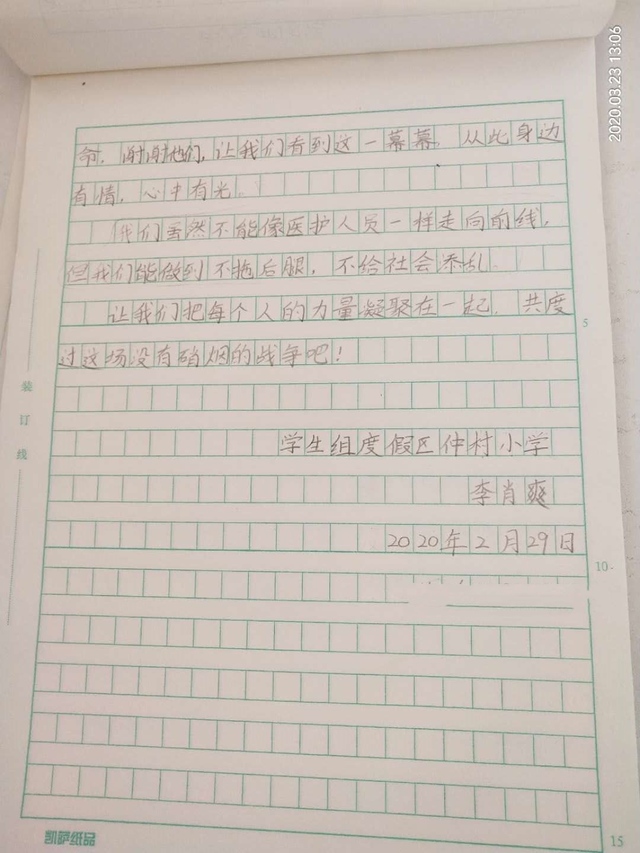 2020.03.23 13:06
命，谢谢他们，让我们看到这一幕幕，从此身边
有情，心中有光。
我们虽然不能像医护人员一样走向前线，
但我们能做到不拖后腿，不给社会添乱。
让我们把每个人的力量凝聚在一起，共度
5
过这场没有硝烟的战争吧！
装订线
学生组度假区仲村小学
李肖爽
2020年2月29日
10
凯萨纸品
15